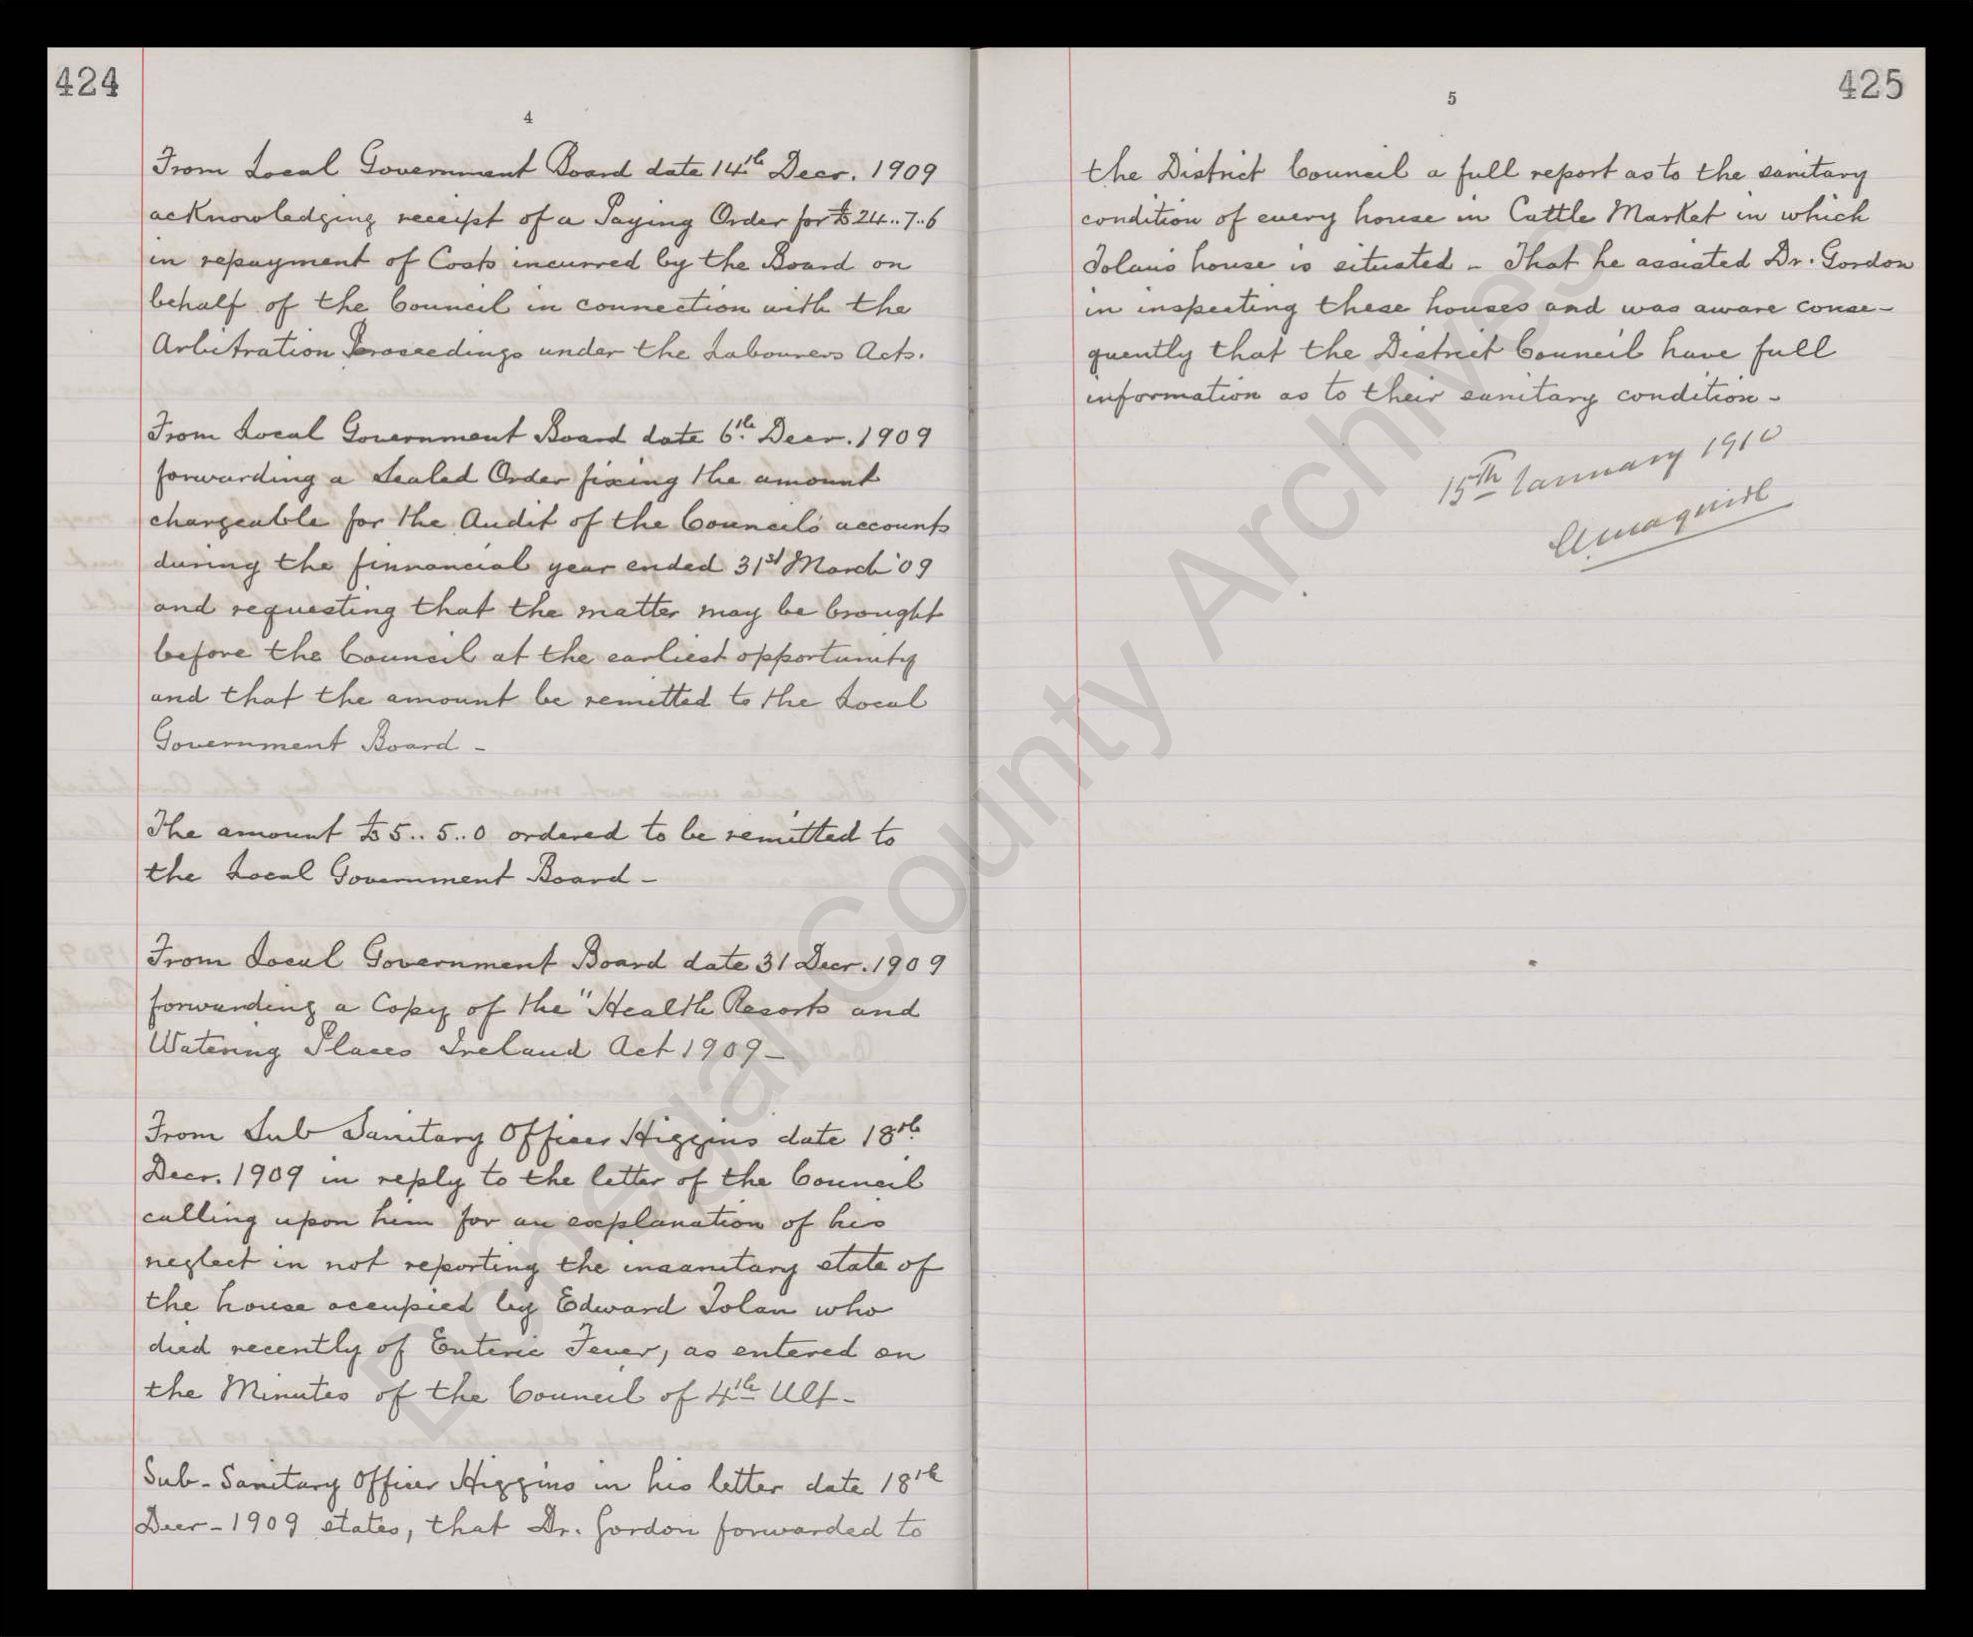 424
4
From Local Government Board date 14th Decr. 1909
acknowledging receipt of a Paying Order for £24..7..6
in repayment of Costs incurred by the Board on
behalf of the Council in connection with the
Arbitration Proceedings under the Labourers Acts.
From Local Government Board date 6th Decr. 1909
forwarding a Sealed Order fixing the amount
chargeable for the Audit of the Council's accounts
during the finnancial year ended 31st March '09
and requesting that the matter may be brought
before the Council at the earliest opportunity
and that the amount be remitted to the Local
Government Board -
The amount £5..5..0 ordered to be remitted to
the Local Government Board -
From Local Government Board date 31 Decr. 1909
forwarding a Copy of the "Health Resorts and
Watering Places Ireland Act 1909 -
From Sub Sanitary Officer Higgins date 18th
Decr. 1909 in reply to the letter of the Council
calling upon him for an explanation of his
neglect in not reporting the insanitary state of
the house occupied by Edward Tolan who
died recently of Enteric Fever, as entered on
the Minutes of the Council of 4th Ult -
Sub-Sanitary Officer Higgins in his letter date 18th
Decr - 1909 states, that Dr. Gordon forwarded to
425
5
the District Council a full report as to the sanitary
condition of every house in Cattle Market in which
Tolan's house is situated - That he assisted Dr. Gordon
in inspecting these houses and was aware conse-
quently that the District Council have full
information as to their sanitary condition -
15th January 1910
Donegal County Archives